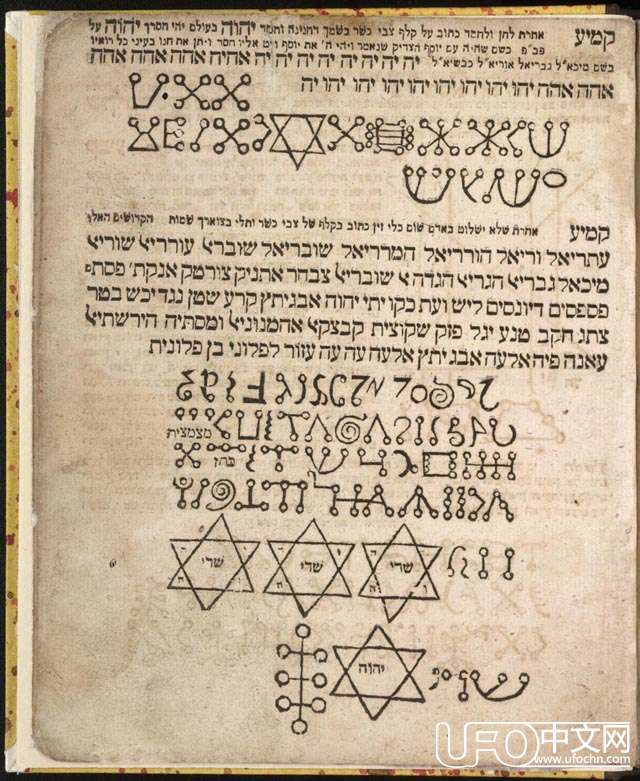 קמיע אחרת לחן ולחסד כתוב על קלף צבי כשר בשמך דחנינה וחסד יהוה בעולם יהי חסדך יהוה על
פב"פ כשם שהיה עם יוסף הצדיק שנאמר ויהי ה' את יוסף ויט אליו חסד ויתן את חנו בעיני כל רואיו
בשם מיכא"ל גבריאל אוריא"ל כבשיא"ל יה יה יה יה יה יה יה יה אהיה אהה אהה אהה
אהה אהה יהו יהו יהו יהו יהו יהו יהו יהו יה
קמיע אחרת שלא ישלוט באדם שום כלי זין כתוב בקלף של צבי כשר ותלי בצוארך שמות הקדושים האלו
עתריאל וריאל הורריאל המדריאל שובריאל שוברא עורריא שוריא
מיכאל גבריא הגריא הגדה א שובריא צבחר אתניק צורטק אנקת' פסתם
פספסים דיונסים ליש ועת כקו יתי יהוה אבגיתץ קרע שטן נגדיכש בטר
צתג חקב טנע יגל פזק שקוצית קבצקא אהמנוניא ומסתיה הירשתיא
עאנה פיה אלעה אבג יתץ אלעה עה עה עזור לפלוני בן פלונית
מצמצית
שדי שדי שדי
יהוה
UFO中文网
www.ufochn.com